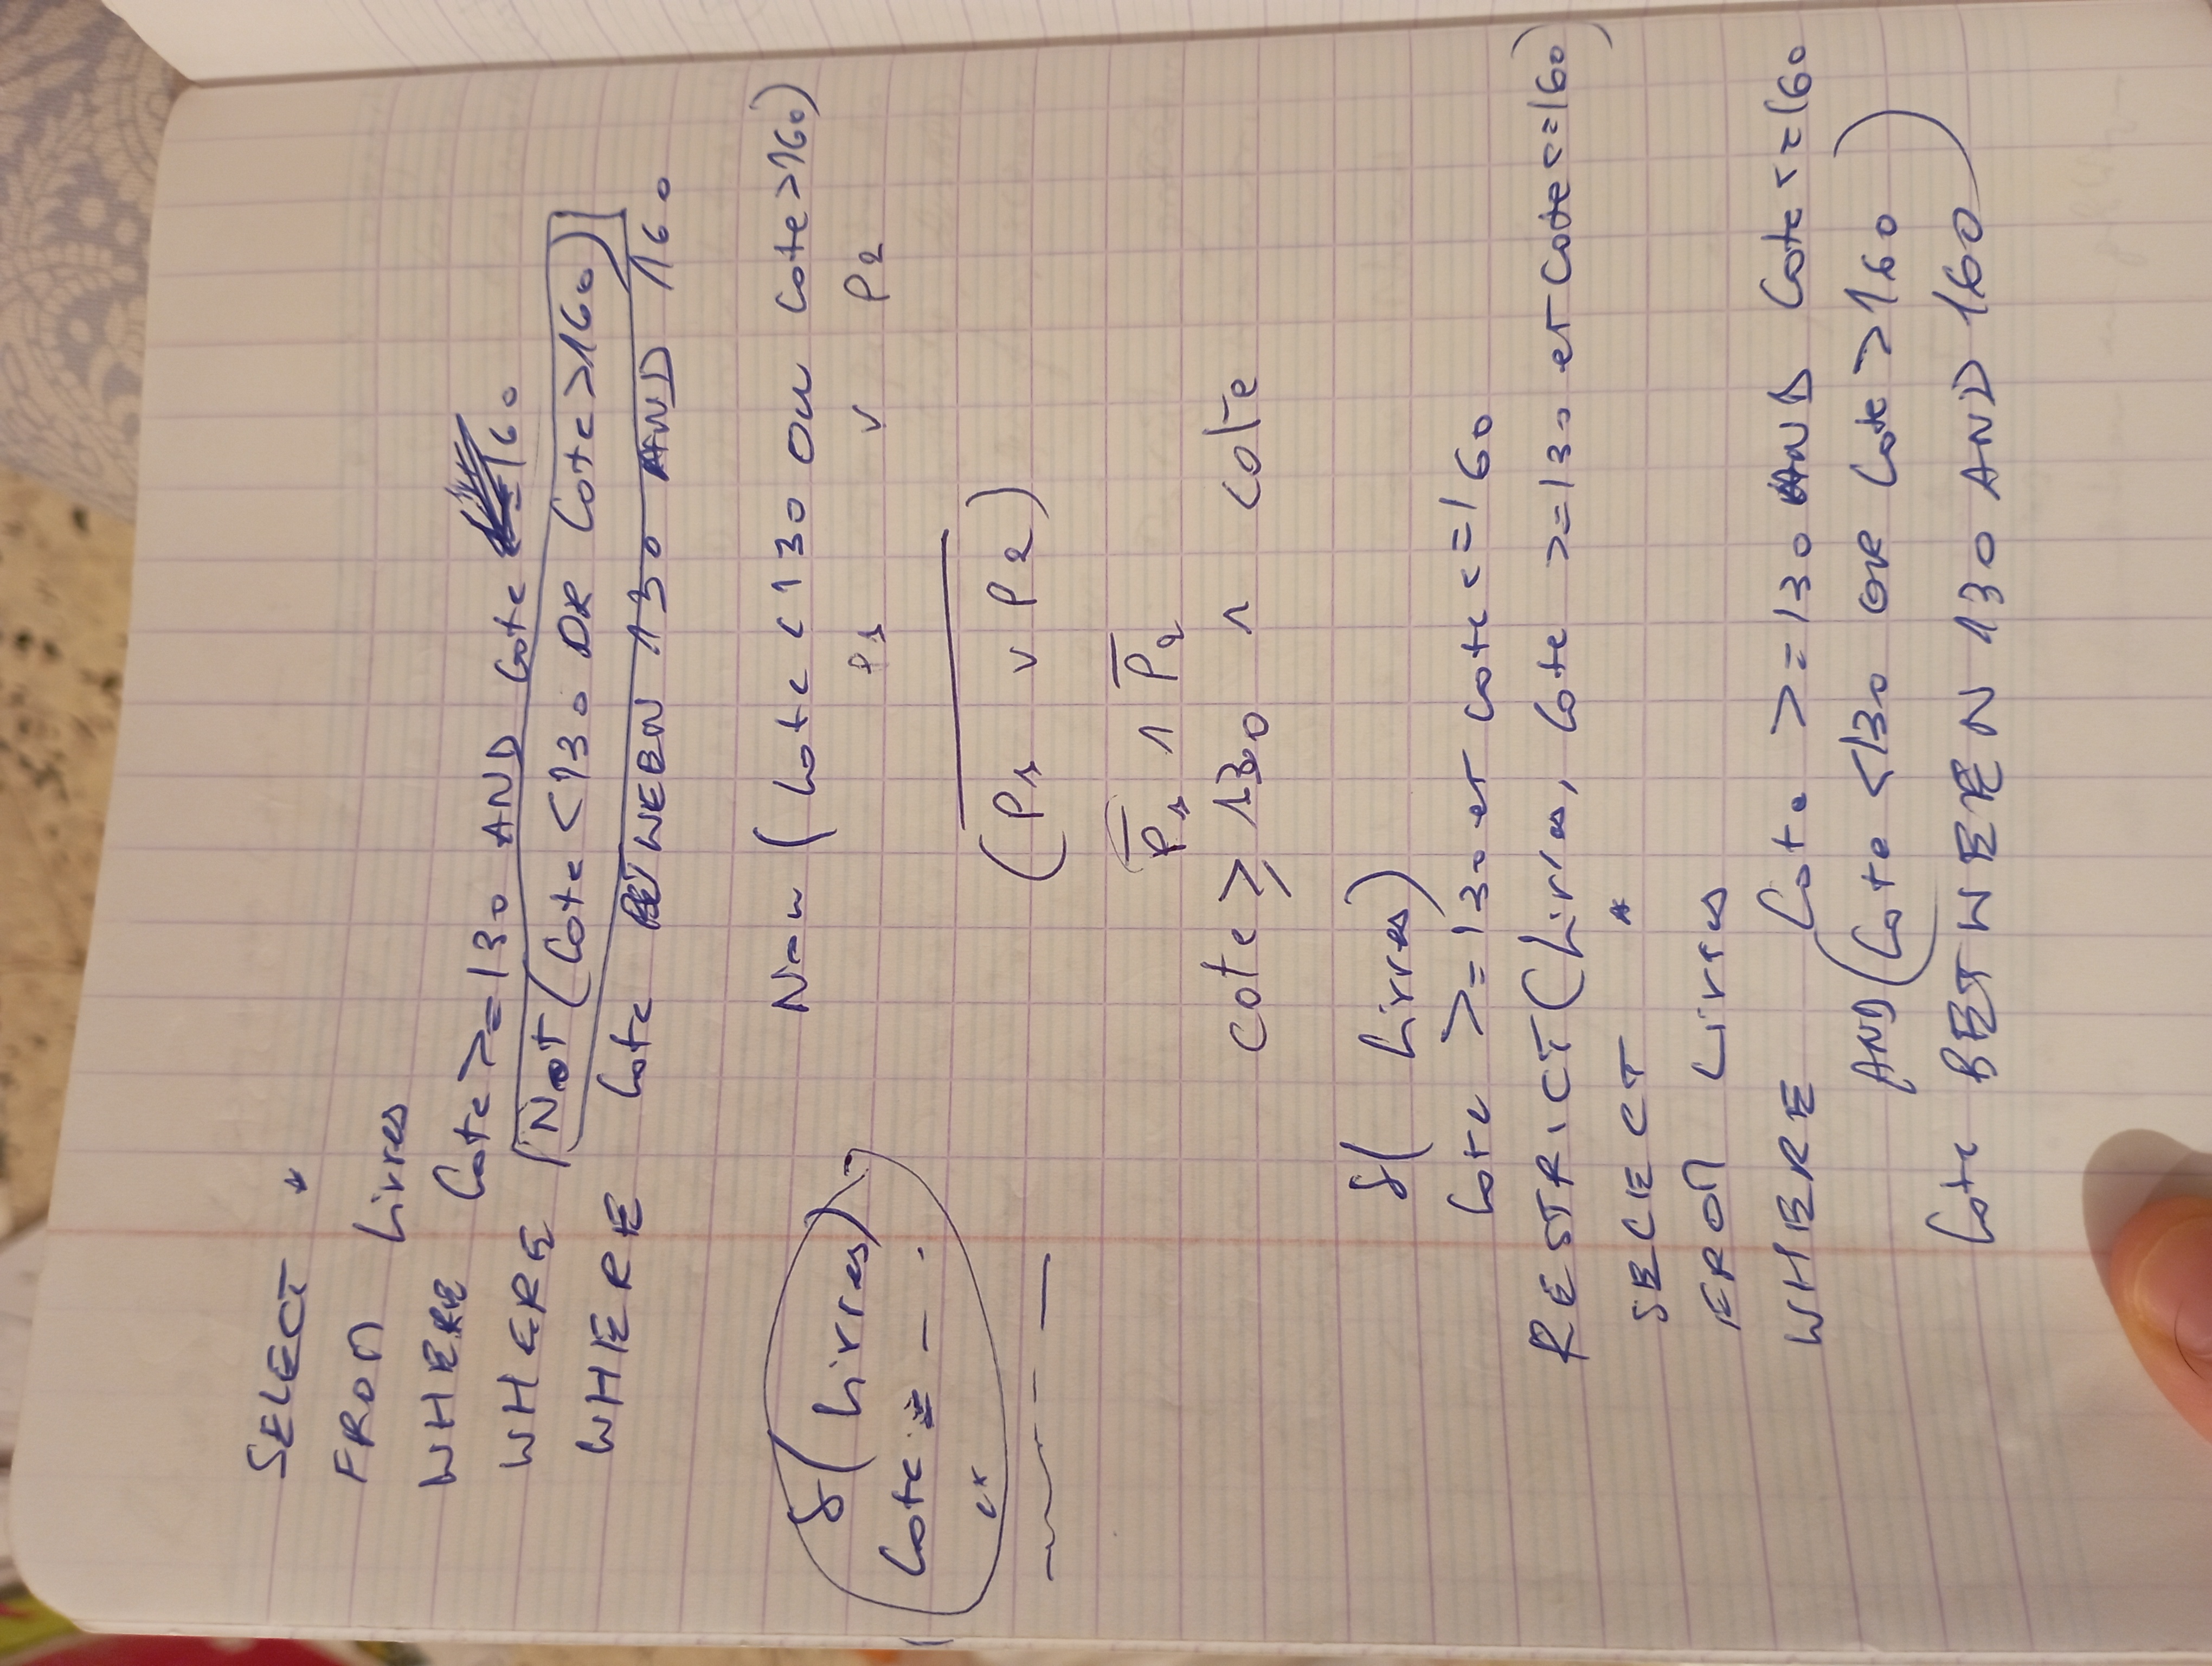 SELECT *
FROM Livres
WHERE Cote >= 130 AND Cote 160
WHERE NOT (Cote < 130 OR Cote > 160)
WHERE Cote BETWEEN 130 AND 160
Non (Cote < 130 ou Cote > 160)
δ(Livres)
P1 v P2
Cote = - - .
(P1 v P2)
P1 ∧ P2
Cote ≥ 130 ∧ Cote
δ( Livres)
Cote >= 130 et Cote <= 160
RESTRICT (Livres, Cote >= 130 et Cote <= 160)
SELECT *
FROM Livres
WHERE Cote >= 130 AND Cote <= 160
AND (Cote < 130 OR Cote > 160
Cote BETWEEN 130 AND 160)